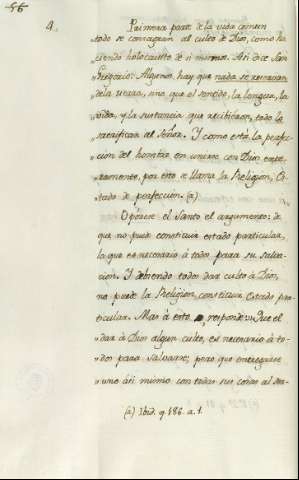 56
4.
Primera parte de la vida comun
todo se consagran al culto de Dios, como ha
ciendo holocausto de si mismos. Asi dice San
Gregorio: Algunos hay que nada se reservan
"de la usura, sino que el sentido, la lengua, la
"vida, y la sustancia que recibieron, todo lo
"sacrifican al Señor. Y como está la perfec
cion del hombre en unirse con Dios ente
ramente, por esto se llama la Religion, Es
tado de perfección. (a)
Opónese el Santo el argumento: de
que no puede constituir estado particular,
lo que es necesario á todos para su salva
cion. Y debiendo todos dar culto á Dios,
no puede la Religion constituir Estado par
ticular. Mas á esto responde: "Que el
"dar á Dios algun culto, es necesario á to
"dos para salvarse, pero que entregarse
"uno á si mismo con todas sus cosas al
(a) Ibid. q. 186. a. 1.